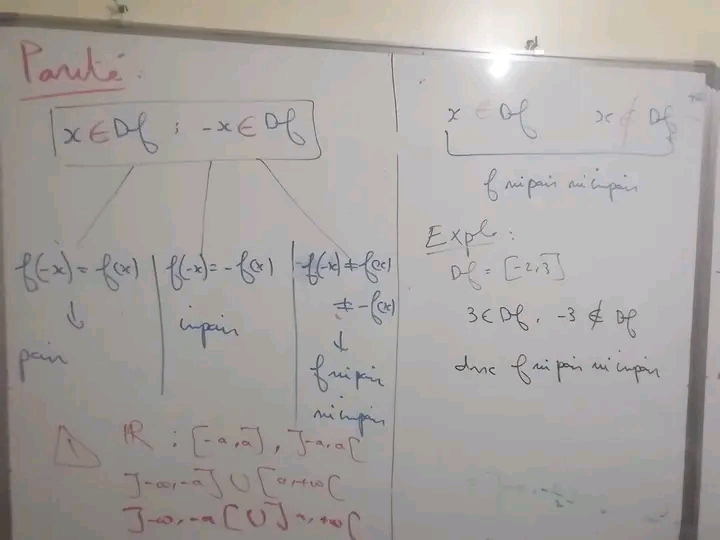 Parité :
x ∈ Df ; -x ∈ Df
f(-x) = f(x)
↓
pair
f(-x) = -f(x)
impair
f(-x) ≠ f(x)
≠ -f(x)
↓
f ni pair
ni impair
! ℝ ; [-a,a] , ]-a,a[
]-∞,-a] ∪ [a,+∞[
]-∞,-a[ ∪ ]a,+∞[
x ∈ Df x ∉ Df
f ni pair ni impair
Exple :
Df = [-2,3]
3 ∈ Df , -3 ∉ Df
donc f ni pair ni impair